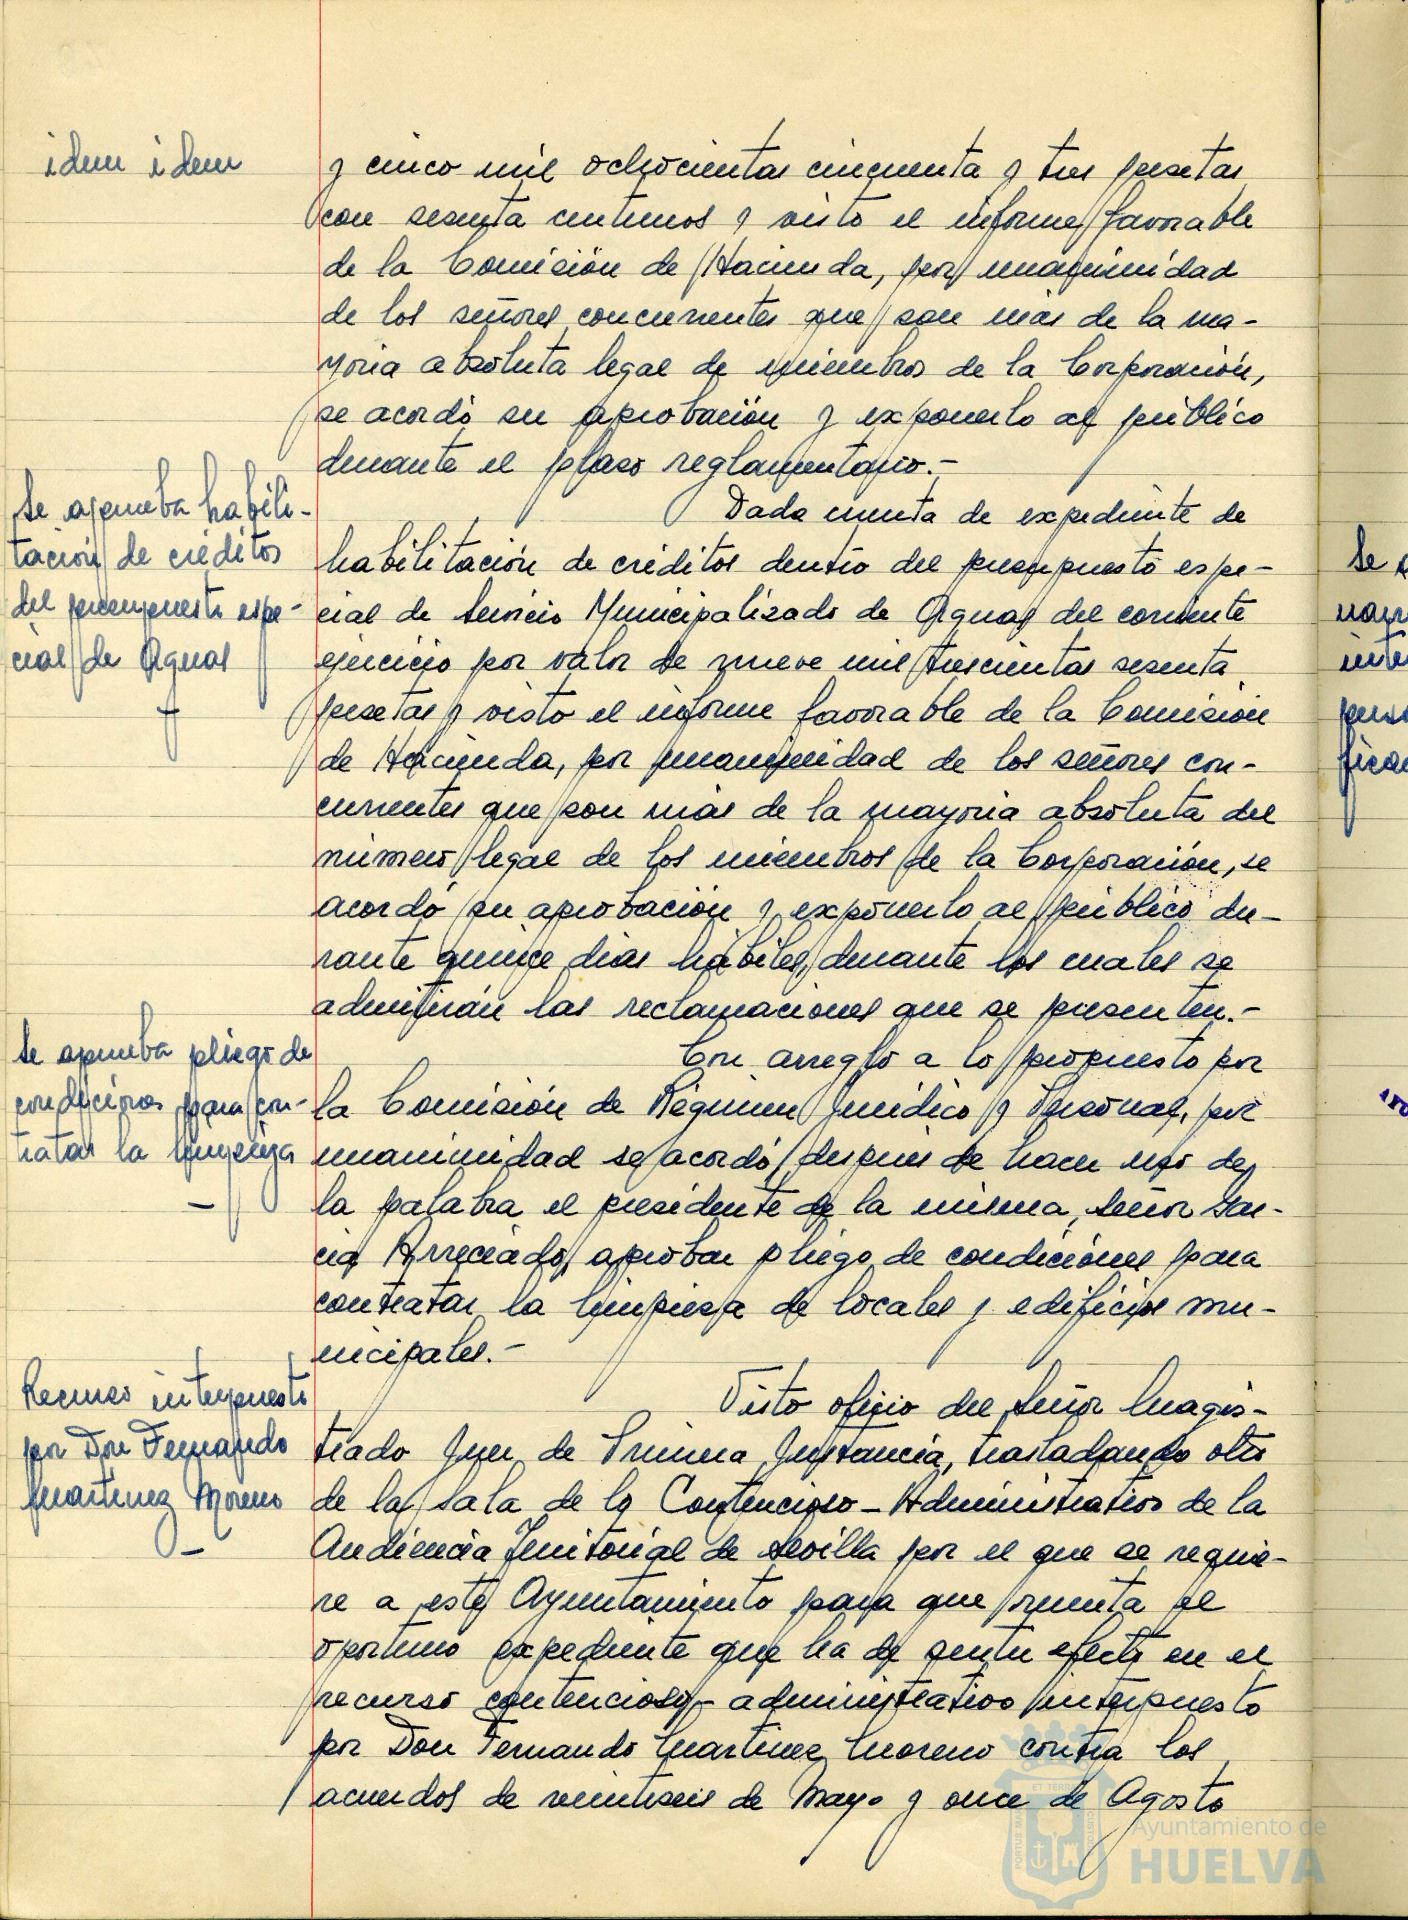 idem idem
y cinco mil ochocientas cincuenta y tres pesetas
con sesenta centimos y visto el informe favorable
de la Comisión de Hacienda, por unanimidad
de los señores concurrentes que son más de la ma-
yoria absoluta legal de miembros de la Corporación,
se acordó su aprobación y exponerlo al público
durante el plazo reglamentario.-
Se aprueba habili-
tación de créditos
del presupuesto espe-
cial de Aguas
Dada cuenta de expediente de
habilitación de créditos dentro del presupuesto espe-
cial de Servicio Municipalizado de Aguas del corriente
ejercicio por valor de nueve mil trescientas sesenta
pesetas y visto el informe favorable de la Comisión
de Hacienda, por unanimidad de los señores con-
currentes que son más de la mayoria absoluta del
número legal de los miembros de la Corporación, se
acordó su aprobación y exponerlo al público du-
rante quince dias hábiles, durante los cuales se
admitirán las reclamaciones que se presenten.-
Se aprueba pliego de
condiciones para con-
tratar la limpieza
Con arreglo a lo propuesto por
la Comisión de Régimen Jurídico y Personal, por
unanimidad se acordó, después de hacer uso de
la palabra el presidente de la misma, Señor Gar-
cia Arreciado, aprobar pliego de condiciones para
contratar la limpieza de locales y edificios mu-
nicipales.-
Recurso interpuesto
por Don Fernando
Martinez Moreno
Visto oficio del Señor Magis-
trado Juez de Primera Instancia, trasladando otro
de la Sala de lo Contencioso-Administrativo de la
Audiencia Territorial de Sevilla por el que se requie-
re a este Ayuntamiento para que remita el
oportuno expediente que ha de surtir efecto en el
recurso contencioso-administrativo interpuesto
por Don Fernando Martinez Moreno contra los
acuerdos de veintiseis de Mayo y once de Agosto
Se
Ayuntamiento de
HUELVA